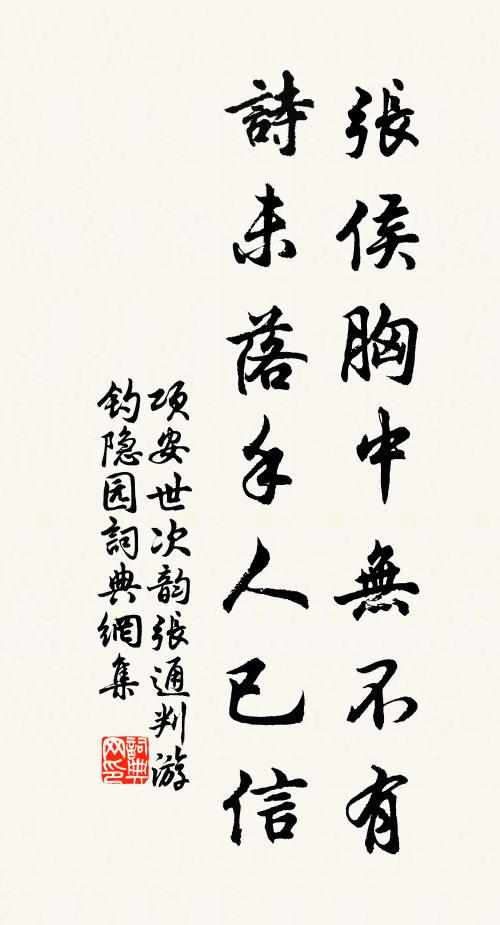 張侯胸中無不有
詩未落手人已信
項安世次韵張通判游
钓隐园詞典網集
詞典
网印